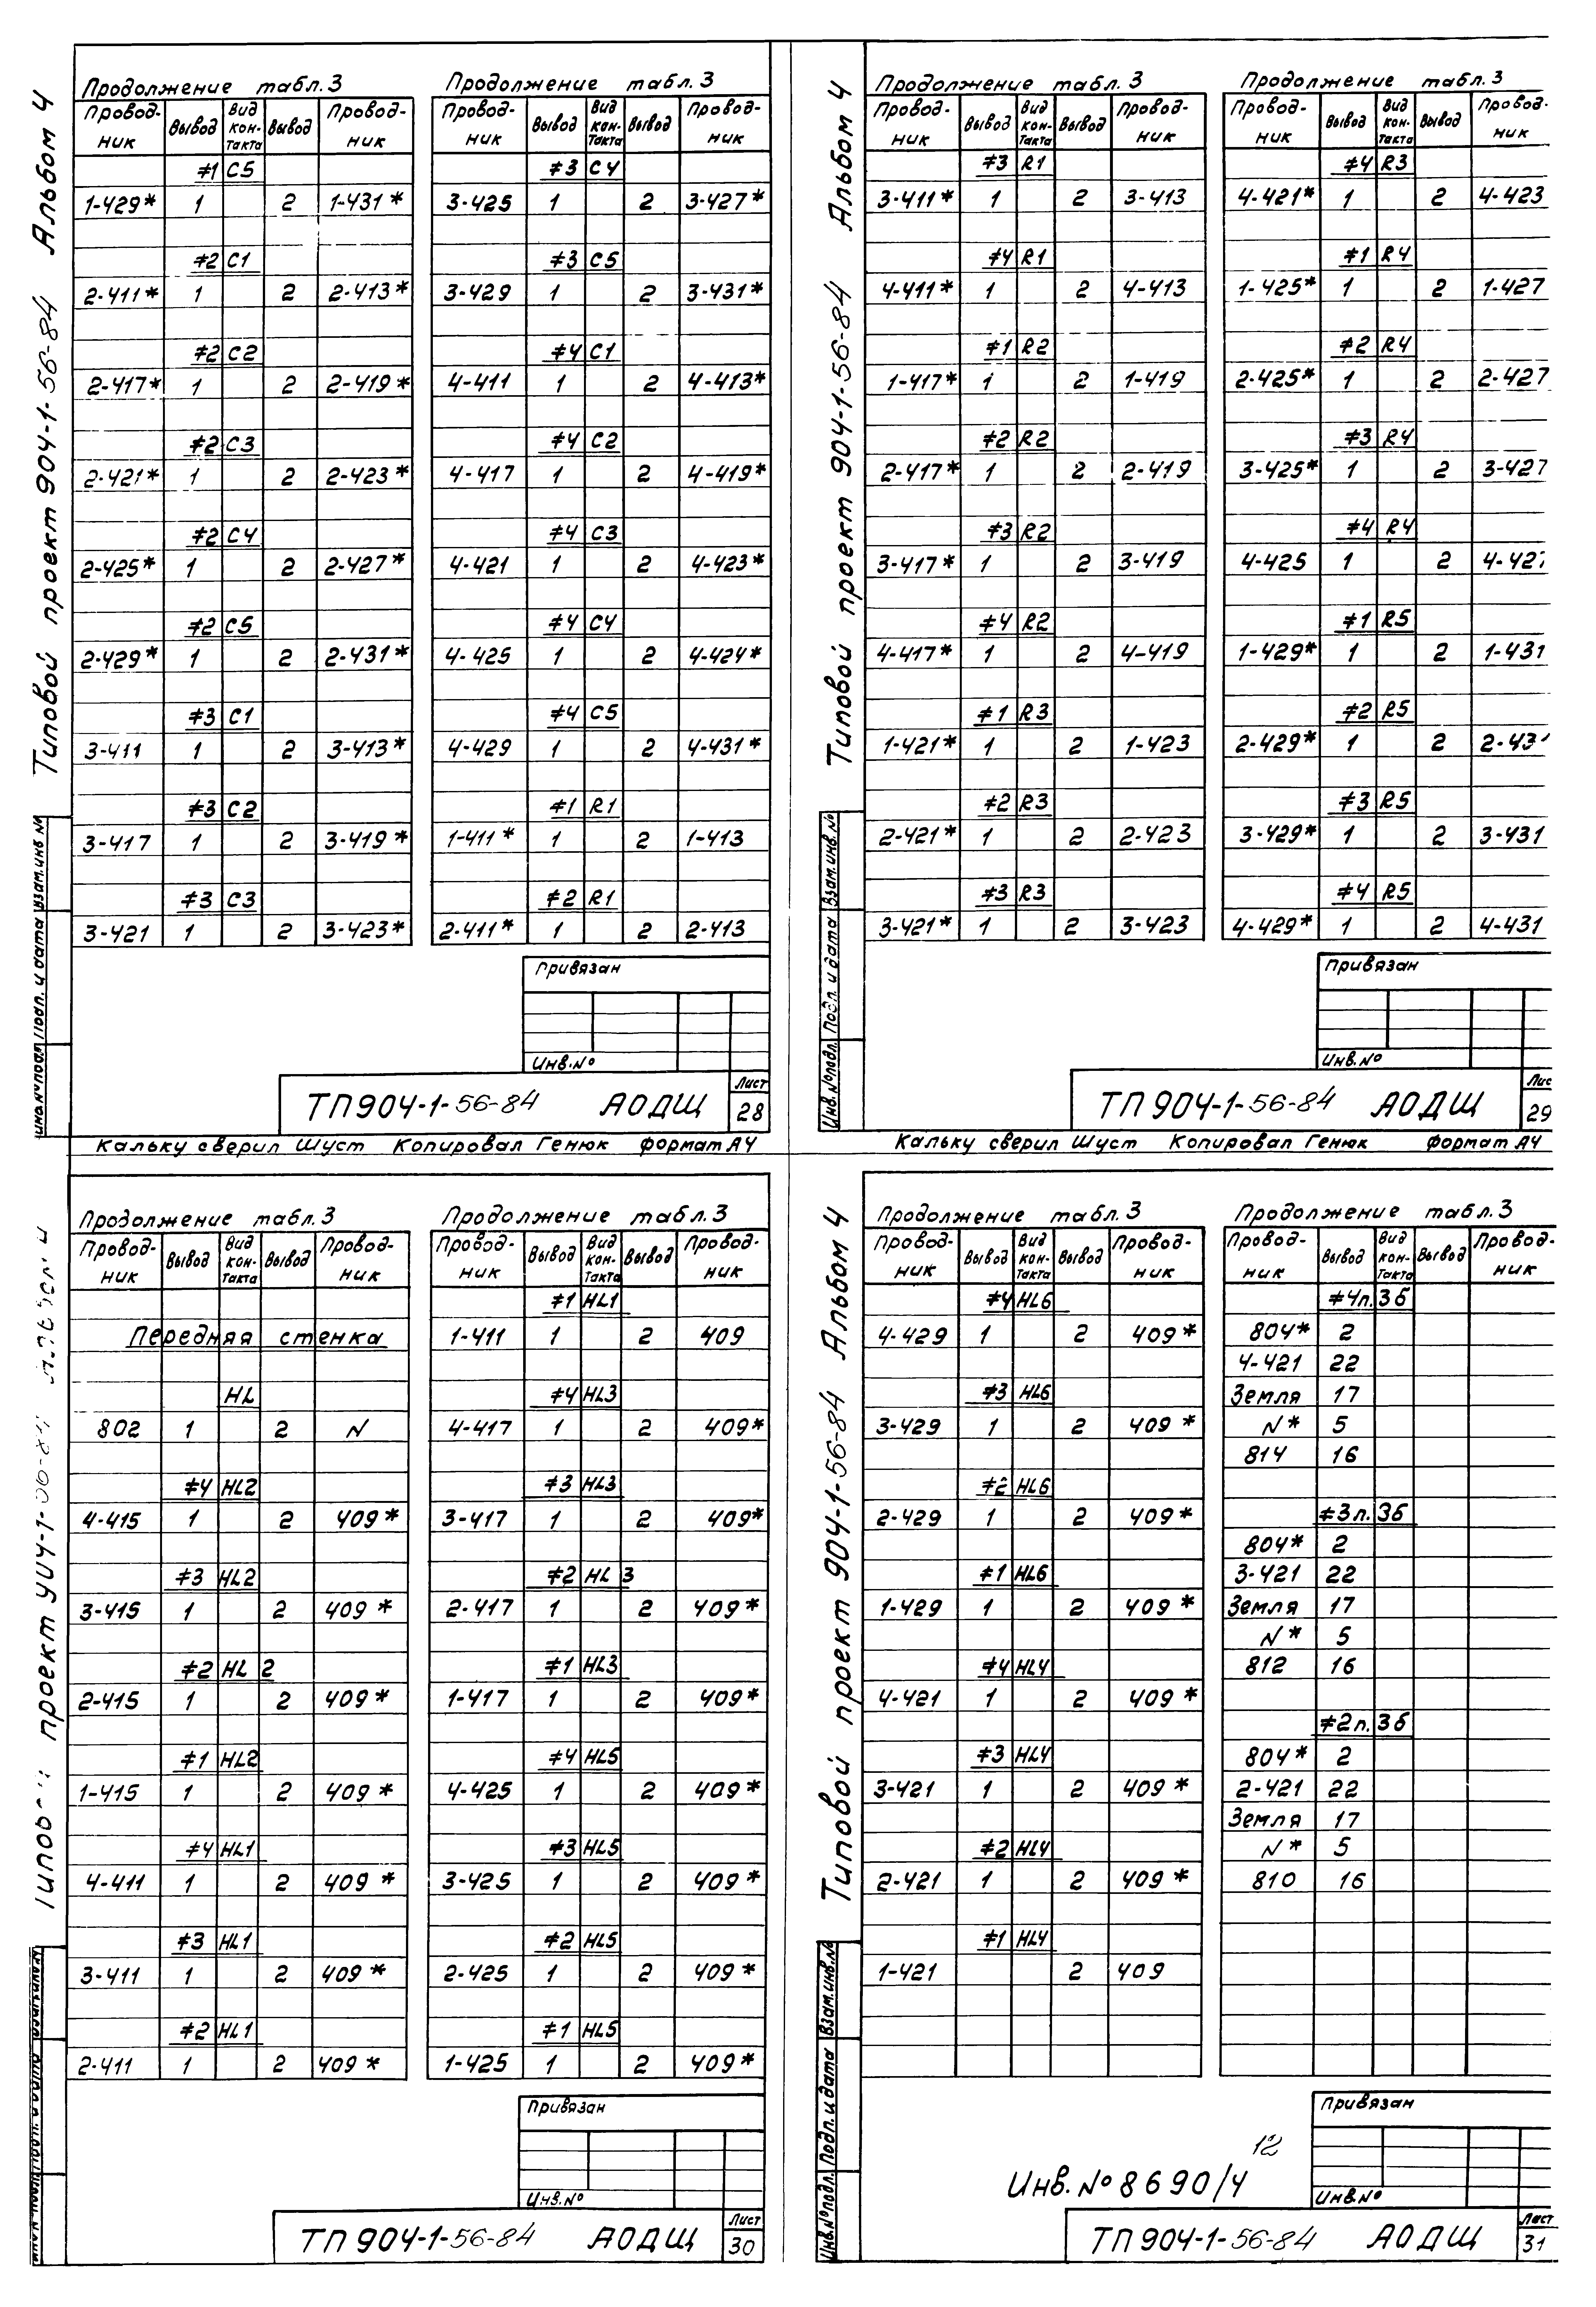 Альбом 4
Типовой проект 904-1-56-84
Продолжение табл. 3
Провод-ник Вывод Вид кон-такта Вывод Провод-ник
#1 C5
1-429* 1 2 1-431*
#2 C1
2-411* 1 2 2-413*
#2 C2
2-417* 1 2 2-419*
#2 C3
2-421* 1 2 2-423*
#2 C4
2-425* 1 2 2-427*
#2 C5
2-429* 1 2 2-431*
#3 C1
3-411 1 2 3-413*
#3 C2
3-417 1 2 3-419*
#3 C3
3-421 1 2 3-423*
Продолжение табл. 3
Провод-ник Вывод Вид кон-такта Вывод Провод-ник
#3 C4
3-425 1 2 3-427*
#3 C5
3-429 1 2 3-431*
#4 C1
4-411 1 2 4-413*
#4 C2
4-417 1 2 4-419*
#4 C3
4-421 1 2 4-423*
#4 C4
4-425 1 2 4-424*
#4 C5
4-429 1 2 4-431*
#1 R1
1-411* 1 2 1-413
#2 R1
2-411* 1 2 2-413
Привязан
Инв.№
ТП 904-1-56-84 АОДЩ
Лист
28
Подп. и дата Взам.инв №
Кальку сверил Шуст Копировал Генюк формат А4
Альбом 4
Типовой проект 904-1-56-84
Продолжение табл. 3
Провод-ник Вывод Вид кон-такта Вывод Провод-ник
#3 R1
3-411* 1 2 3-413
#4 R1
4-411* 1 2 4-413
#1 R2
1-417* 1 2 1-419
#2 R2
2-417* 1 2 2-419
#3 R2
3-417* 1 2 3-419
#4 R2
4-417* 1 2 4-419
#1 R3
1-421* 1 2 1-423
#2 R3
2-421* 1 2 2-423
#3 R3
3-421* 1 2 3-423
Продолжение табл. 3
Провод-ник Вывод Вид кон-такта Вывод Провод-ник
#4 R3
4-421* 1 2 4-423
#1 R4
1-425* 1 2 1-427
#2 R4
2-425* 1 2 2-427
#3 R4
3-425* 1 2 3-427
#4 R4
4-425 1 2 4-427
#1 R5
1-429* 1 2 1-431
#2 R5
2-429* 1 2 2-431
#3 R5
3-429* 1 2 3-431
#4 R5
4-429* 1 2 4-431
Привязан
Инв.№
ТП 904-1-56-84 АОДЩ
Лис
29
Инв.№подл. Подп. и дата Взам.инв.№
Кальку сверил Шуст Копировал Генюк формат А4
проект
Продолжение табл. 3
Провод-ник Вывод Вид кон-такта Вывод Провод-ник
Передняя стенка
HL
802 1 2 N
#4 HL2
4-415 1 2 409*
#3 HL2
3-415 1 2 409*
#2 HL 2
2-415 1 2 409*
#1 HL2
1-415 1 2 409*
#4 HL1
4-411 1 2 409*
#3 HL1
3-411 1 2 409*
#2 HL1
2-411 1 2 409*
Продолжение табл. 3
Провод-ник Вывод Вид кон-такта Вывод Провод-ник
#1 HL1
1-411 1 2 409
#4 HL3
4-417 1 2 409*
#3 HL3
3-417 1 2 409*
#2 HL 3
2-417 1 2 409*
#1 HL3
1-417 1 2 409*
#4 HL5
4-425 1 2 409*
#3 HL5
3-425 1 2 409*
#2 HL5
2-425 1 2 409*
#1 HL5
1-425 1 2 409*
Привязан
Инв.№
ТП 904-1-56-84 АОДЩ
Лист
30
Альбом 4
Типовой проект 904-1-56-84
Продолжение табл. 3
Провод-ник Вывод Вид кон-такта Вывод Провод-ник
#4 HL6
4-429 1 2 409*
#3 HL6
3-429 1 2 409*
#2 HL6
2-429 1 2 409*
#1 HL6
1-429 1 2 409*
#4 HL4
4-421 1 2 409*
#3 HL4
3-421 1 2 409*
#2 HL4
2-421 1 2 409*
#1 HL4
1-421 2 409
Продолжение табл. 3
Провод-ник Вывод Вид кон-такта Вывод Провод-ник
#4п. 3б
804* 2
4-421 22
Земля 17
N* 5
814 16
#3п. 3б
804* 2
3-421 22
Земля 17
N* 5
812 16
#2п. 3б
804* 2
2-421 22
Земля 17
N* 5
810 16
Привязан
Инв.№
12
Инв.№ 8690/4
ТП 904-1-56-84 АОДЩ
Лист
31
Инв.№подл. Подп. и дата Взам.инв.№